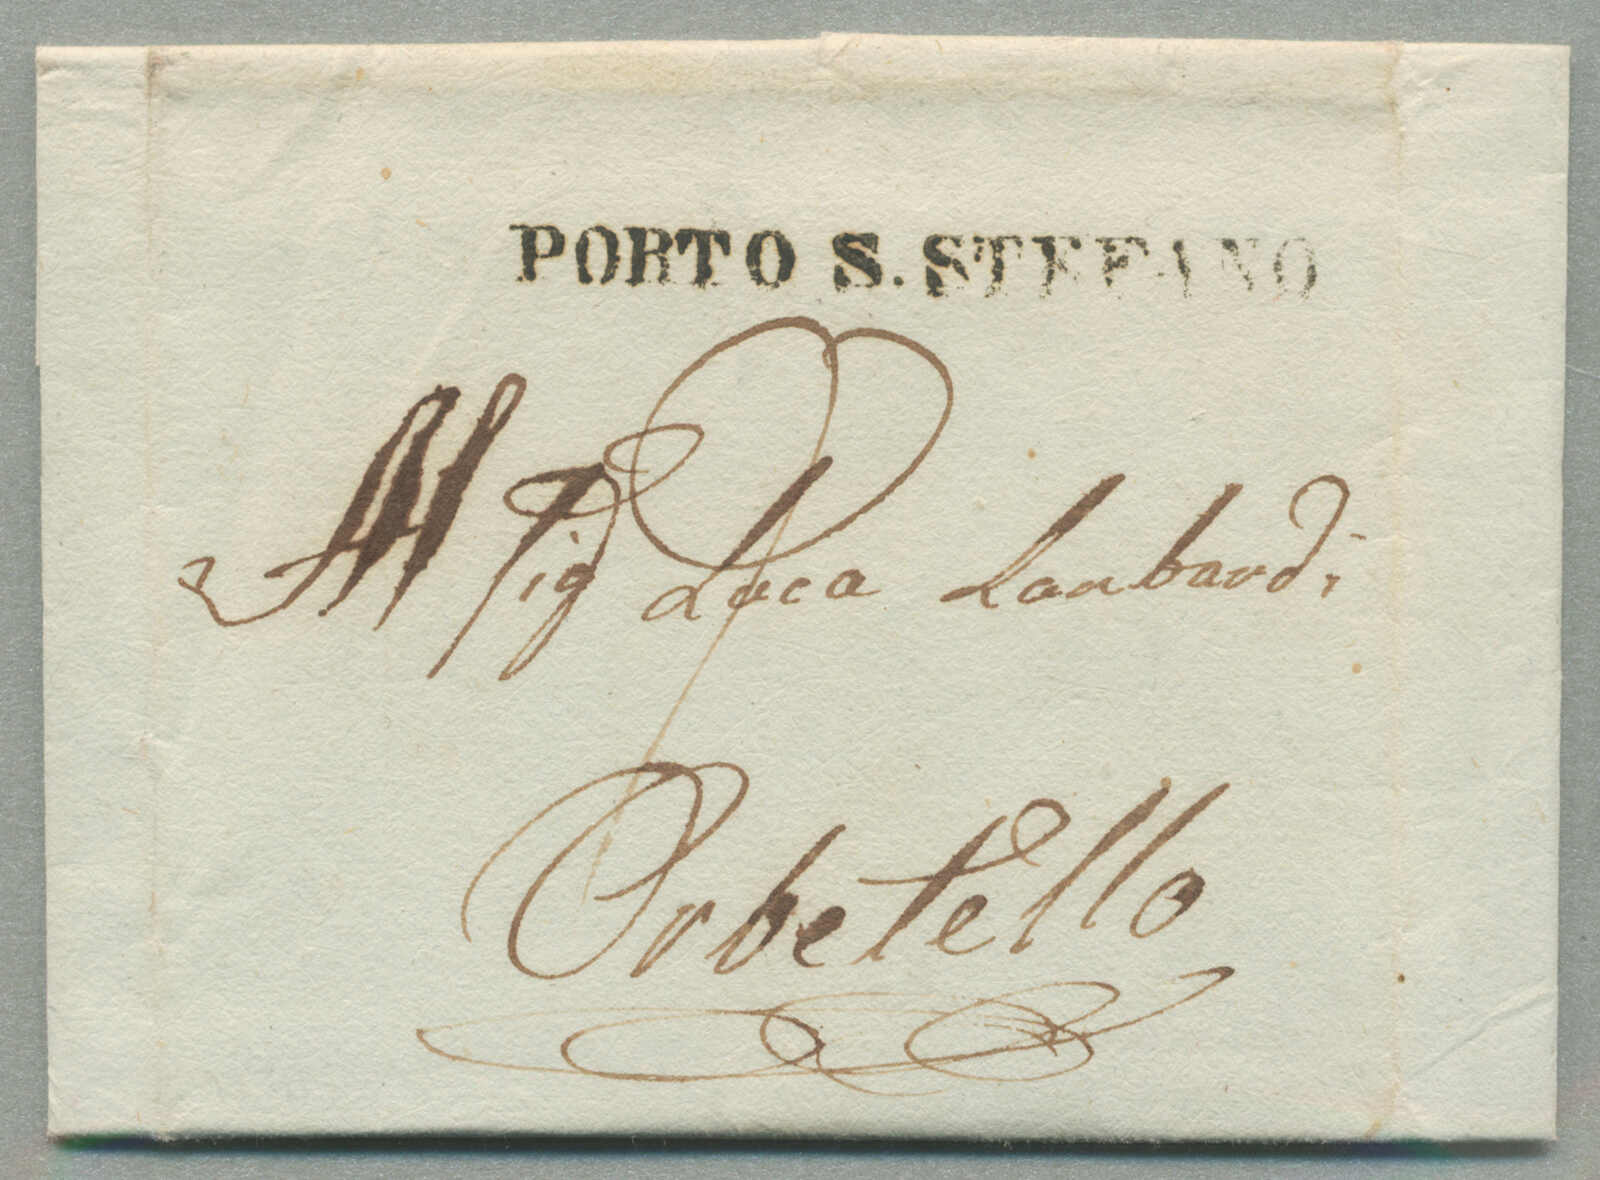 PORTO S. STEFANO
Al Sig Luca Lanbardi
Orbetello